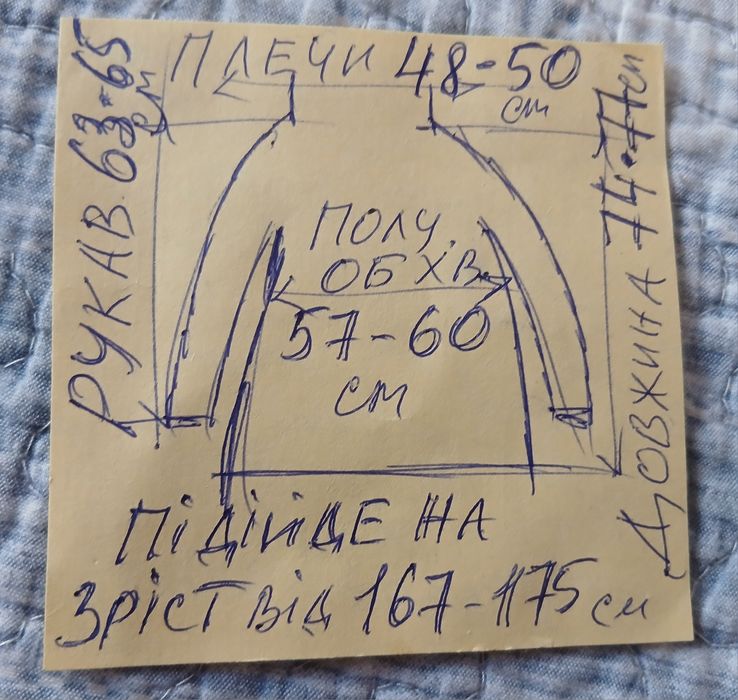 ПЛЕЧИ 48-50
см
РУКАВ 63-65
см
ПОЛУ
ОБХВ.
57-60
см
ДОВЖИНА 74-77см
ПІДІЙДЕ НА
ЗРІСТ ВІД 167-175 см